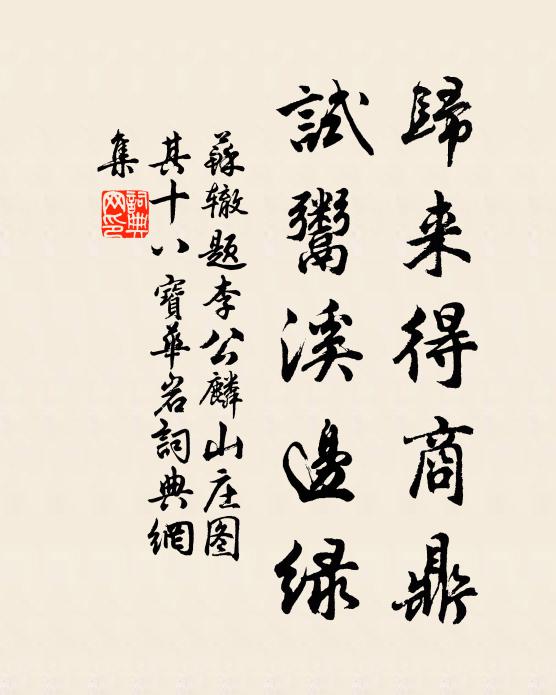 歸来得商鼎
試鬻溪邊緑
蘇辙题李公麟山庄图
其十八寶華岩詞典網
集
詞典网印